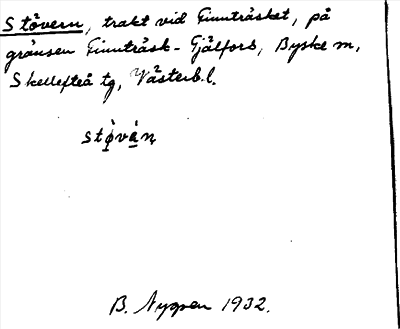 Stövern, trakt vid Finnträsket, på
gränsen Finnträsk - Gjälfors, Byske m,
Skellefteå tg, Västerb.l.
B. Nygren 1932.